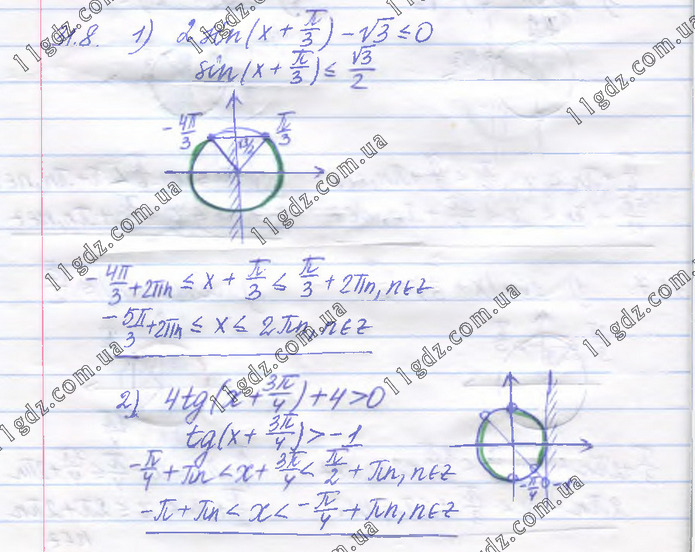 4.8. 1) 2 sin(x + π/3) - √3 ≤ 0
sin(x + π/3) ≤ √3/2
-4π/3 π/3
-4π/3 + 2πn ≤ x + π/3 ≤ π/3 + 2πn, n∈z
-5π/3 + 2πn ≤ x ≤ 2πn, n∈z
2) 4tg(x + 3π/4) + 4 > 0
tg(x + 3π/4) > -1
-π/4 + πn < x + 3π/4 < π/2 + πn, n∈z
-π/4
-π + πn < x < -π/4 + πn, n∈z
11gdz.com.ua
11gdz.com.ua
11gdz.com.ua
11gdz.com.ua
11gdz.com.ua
11gdz.com.ua
11gdz.com.ua
11gdz.com.ua